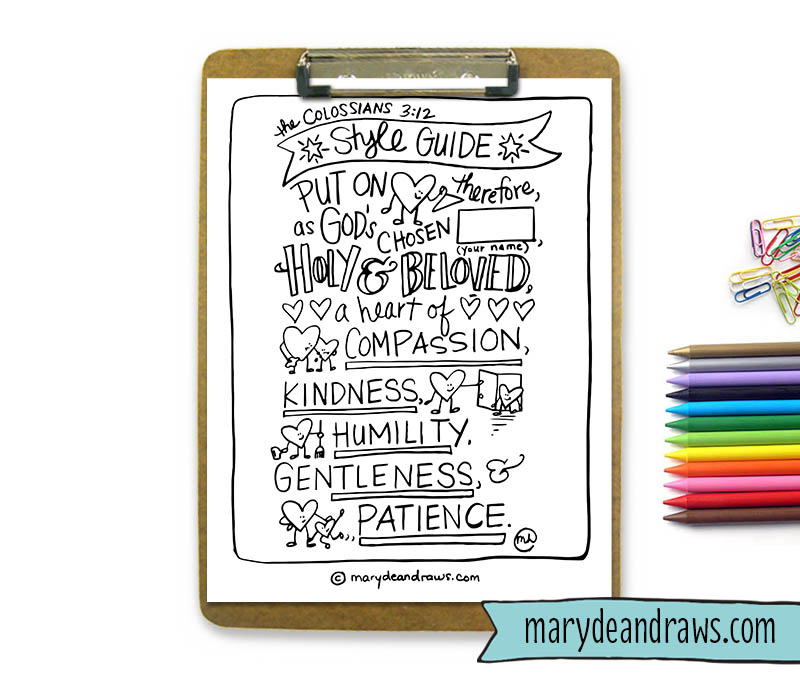 the COLOSSIANS 3:12
Style GUIDE
PUT ON therefore,
as GOD's CHOSEN ,
(your name)
HOLY & BELOVED,
a heart of
COMPASSION,
KINDNESS,
HUMILITY.
GENTLENESS, &
PATIENCE.
© marydeandraws.com
marydeandraws.com